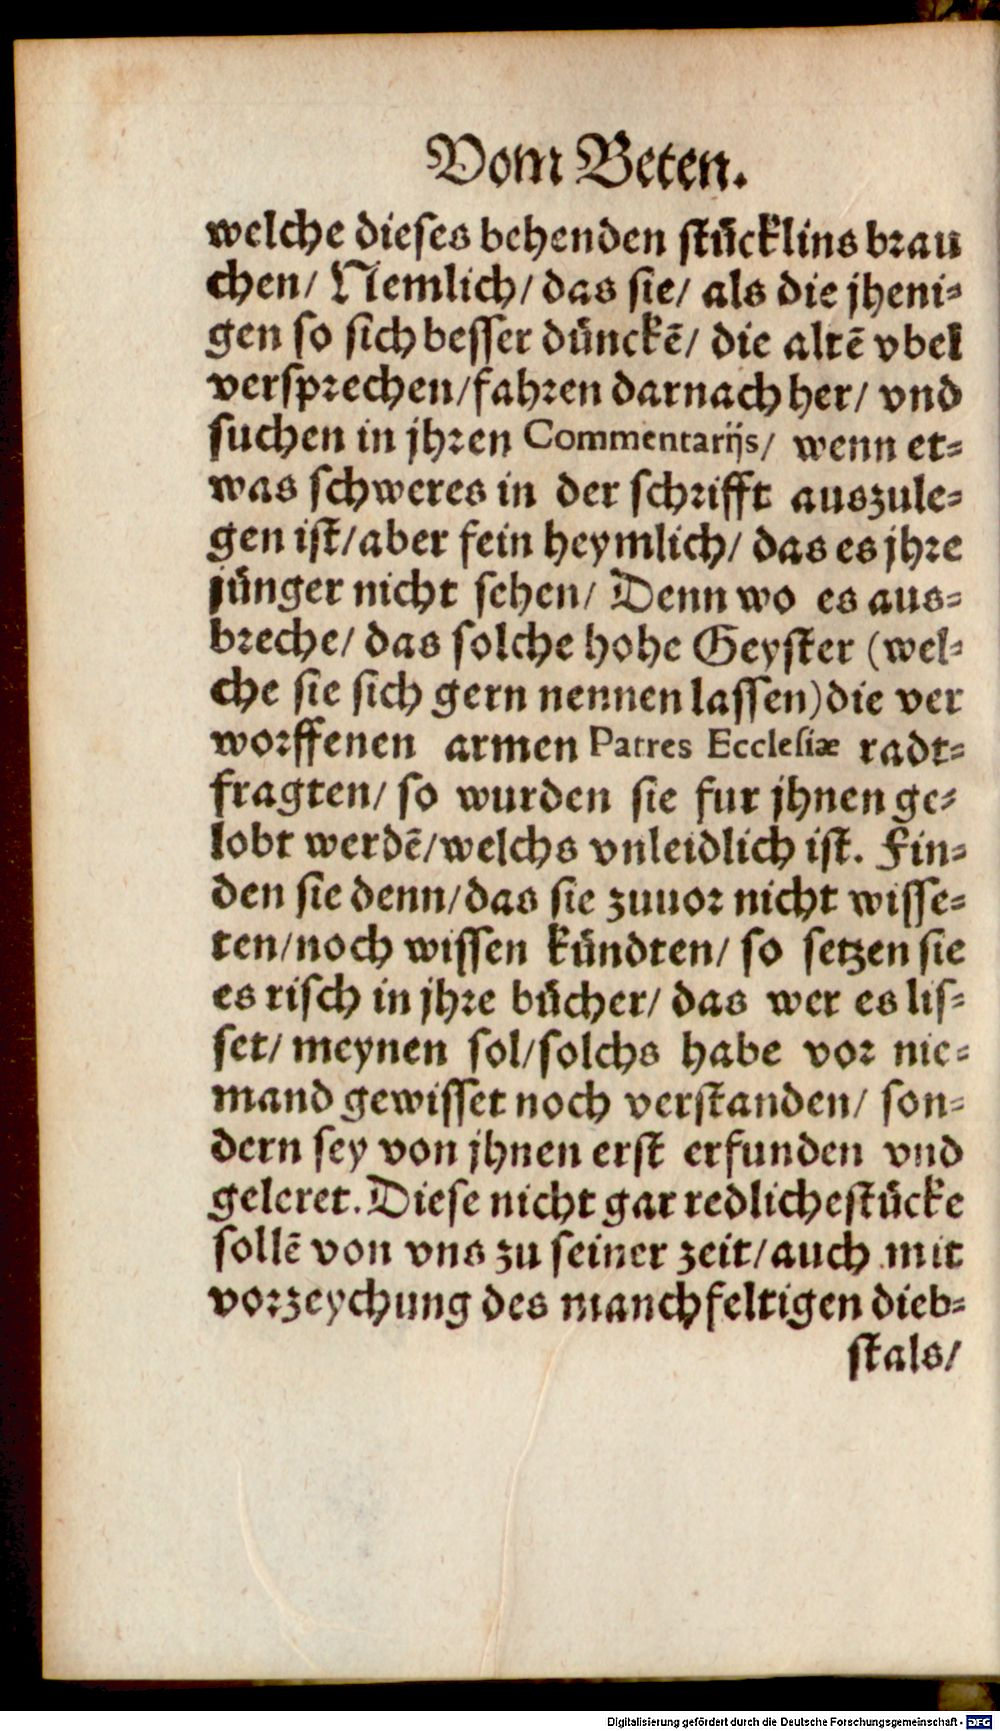 Vom Beten.
welche dieses behenden stücklins brau
chen/ Nemlich/ das sie/ als die jheni-
gen so sich besser dünckē/ die altē vbel
versprechen/fahren darnach her/ vnd
suchen in jhren Commentarijs/ wenn et-
was schweres in der schrifft auszule-
gen ist/aber fein heymlich/ das es jhre
jünger nicht sehen/ Denn wo es aus-
breche/ das solche hohe Geyster (wel-
che sie sich gern nennen lassen)die ver
worffenen armen Patres Ecclesiæ radt-
fragten/ so wurden sie fur jhnen ge-
lobt werdē/welchs vnleidlich ist. Fin-
den sie denn/das sie zuuor nicht wisse-
ten/noch wissen kündten/ so setzen sie
es risch in jhre bücher/ das wer es lis-
set/ meynen sol/solchs habe vor nie-
mand gewisset noch verstanden/ son-
dern sey von jhnen erst erfunden vnd
geleret. Diese nicht gar redliche stücke
sollē von vns zu seiner zeit/auch mit
vorzeychung des manchfeltigen dieb-
stals/
Digitalisierung gefördert durch die Deutsche Forschungsgemeinschaft - DFG